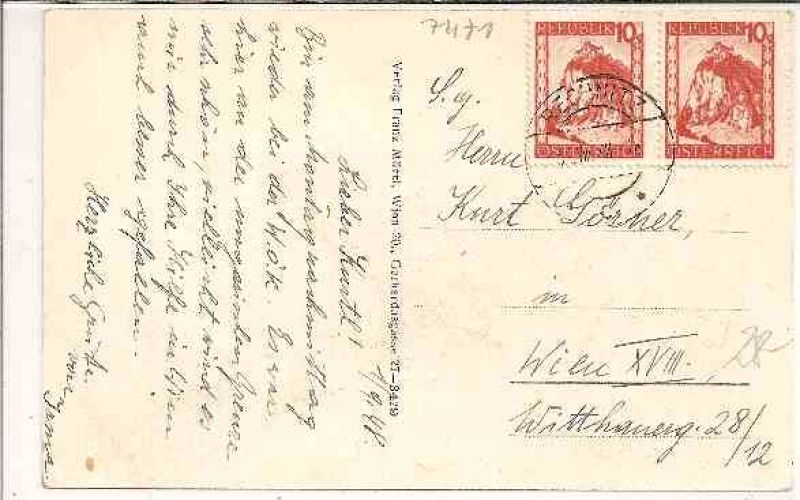 7471
REPUBLIK 10
ÖSTERREICH
REPUBLIK 10
ÖSTERREICH
S. g.
Herrn
Kurt Görner,
in
Wien XVIII.,
Witthauerg. 28/12
Verlag Franz Mörtl, Wien 20., Gerhardusgasse 27—8429
1/9.48
Lieber Kurtl!
Bin am Montag nachmittag
wieder bei der Wök. Es war
hier an der ungarischen Grenze
sehr schön, vielleicht wird es
mir durch Ihre Hilfe in Wien
auch besser gefallen.
Herzliche Grüße
von